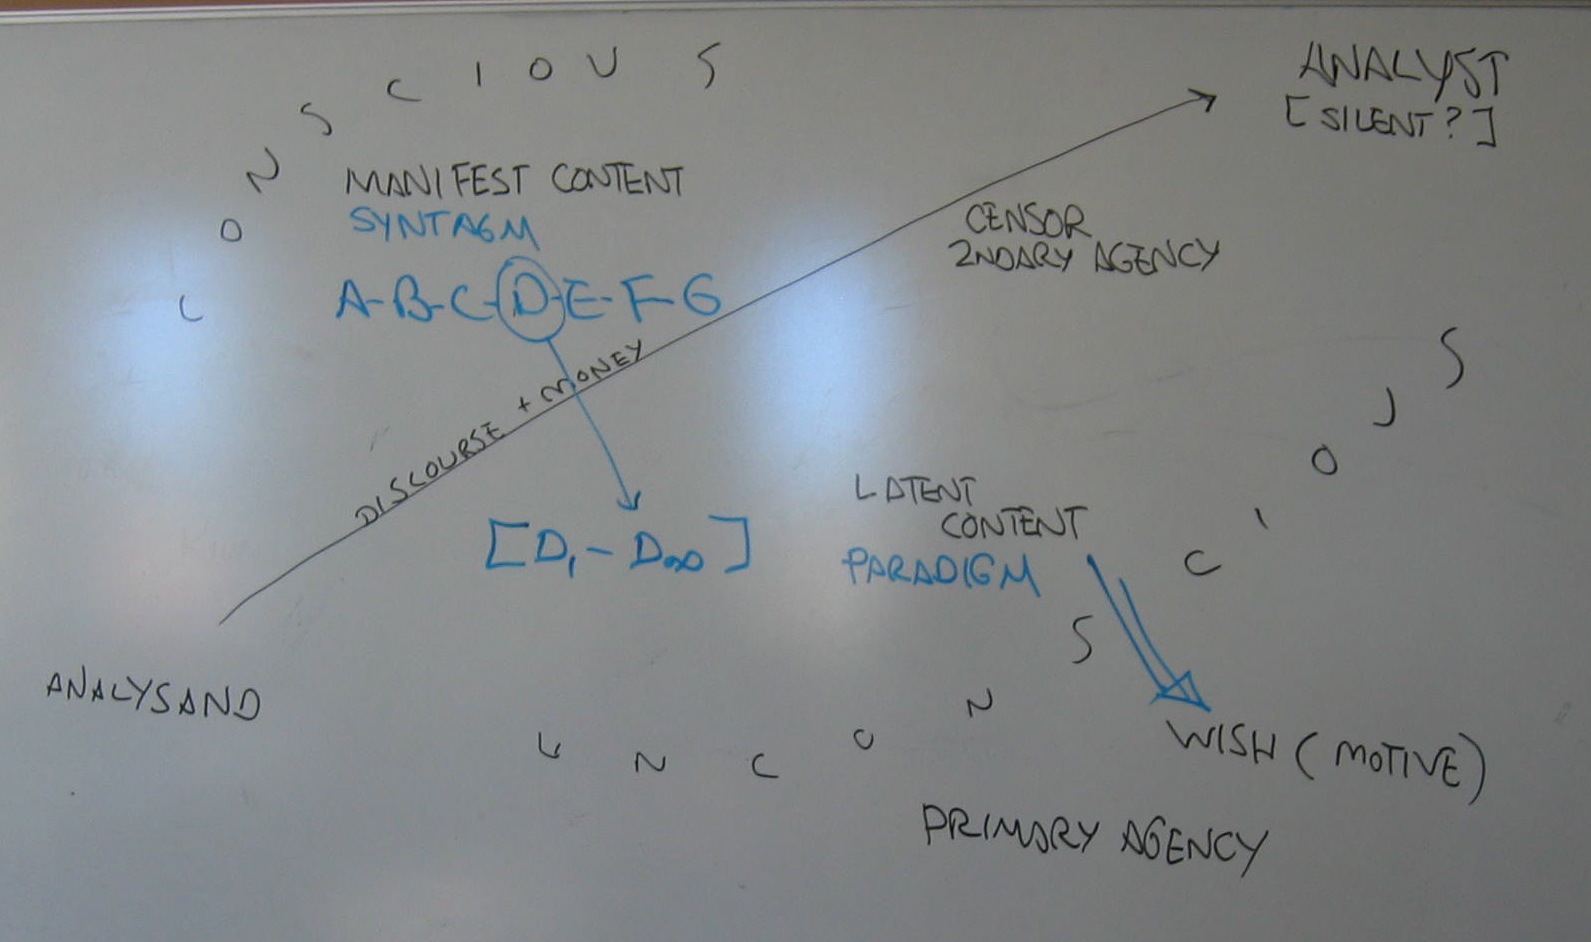 CONSCIOUS
ANALYST
[SILENT?]
MANIFEST CONTENT
SYNTAGM
A-B-C-D-E-F-G
CENSOR
2NDARY AGENCY
DISCOURSE + MONEY
[D₁-D∞]
LATENT
CONTENT
PARADIGM
UNCONSCIOUS
ANALYSAND
WISH (MOTIVE)
PRIMARY AGENCY